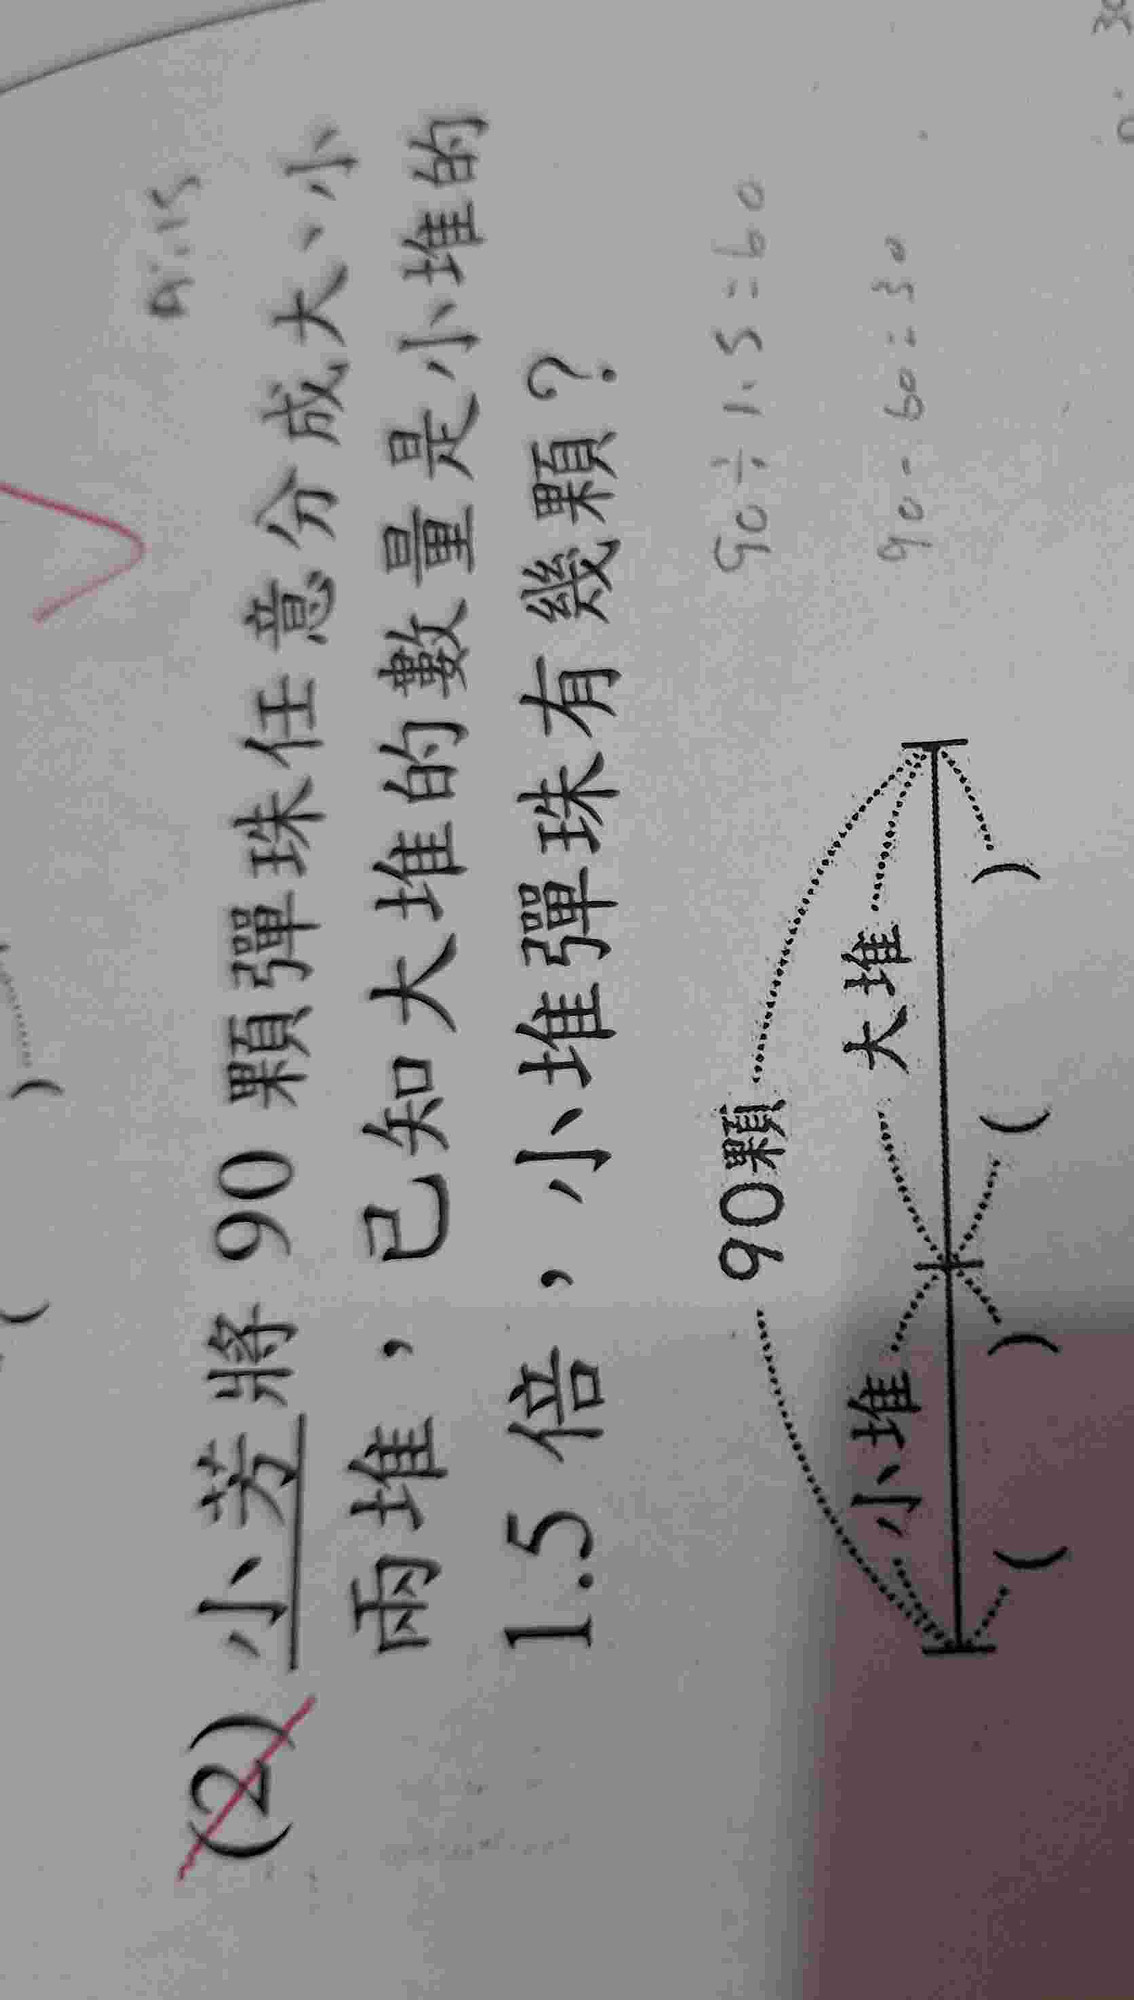 A:15
(2) 小芳將 90 顆彈珠任意分成大、小
兩堆，已知大堆的數量是小堆的
1.5 倍，小堆彈珠有幾顆？
90÷1.5=60
90-60=30
90顆
小堆 大堆
( ) ( )
( )